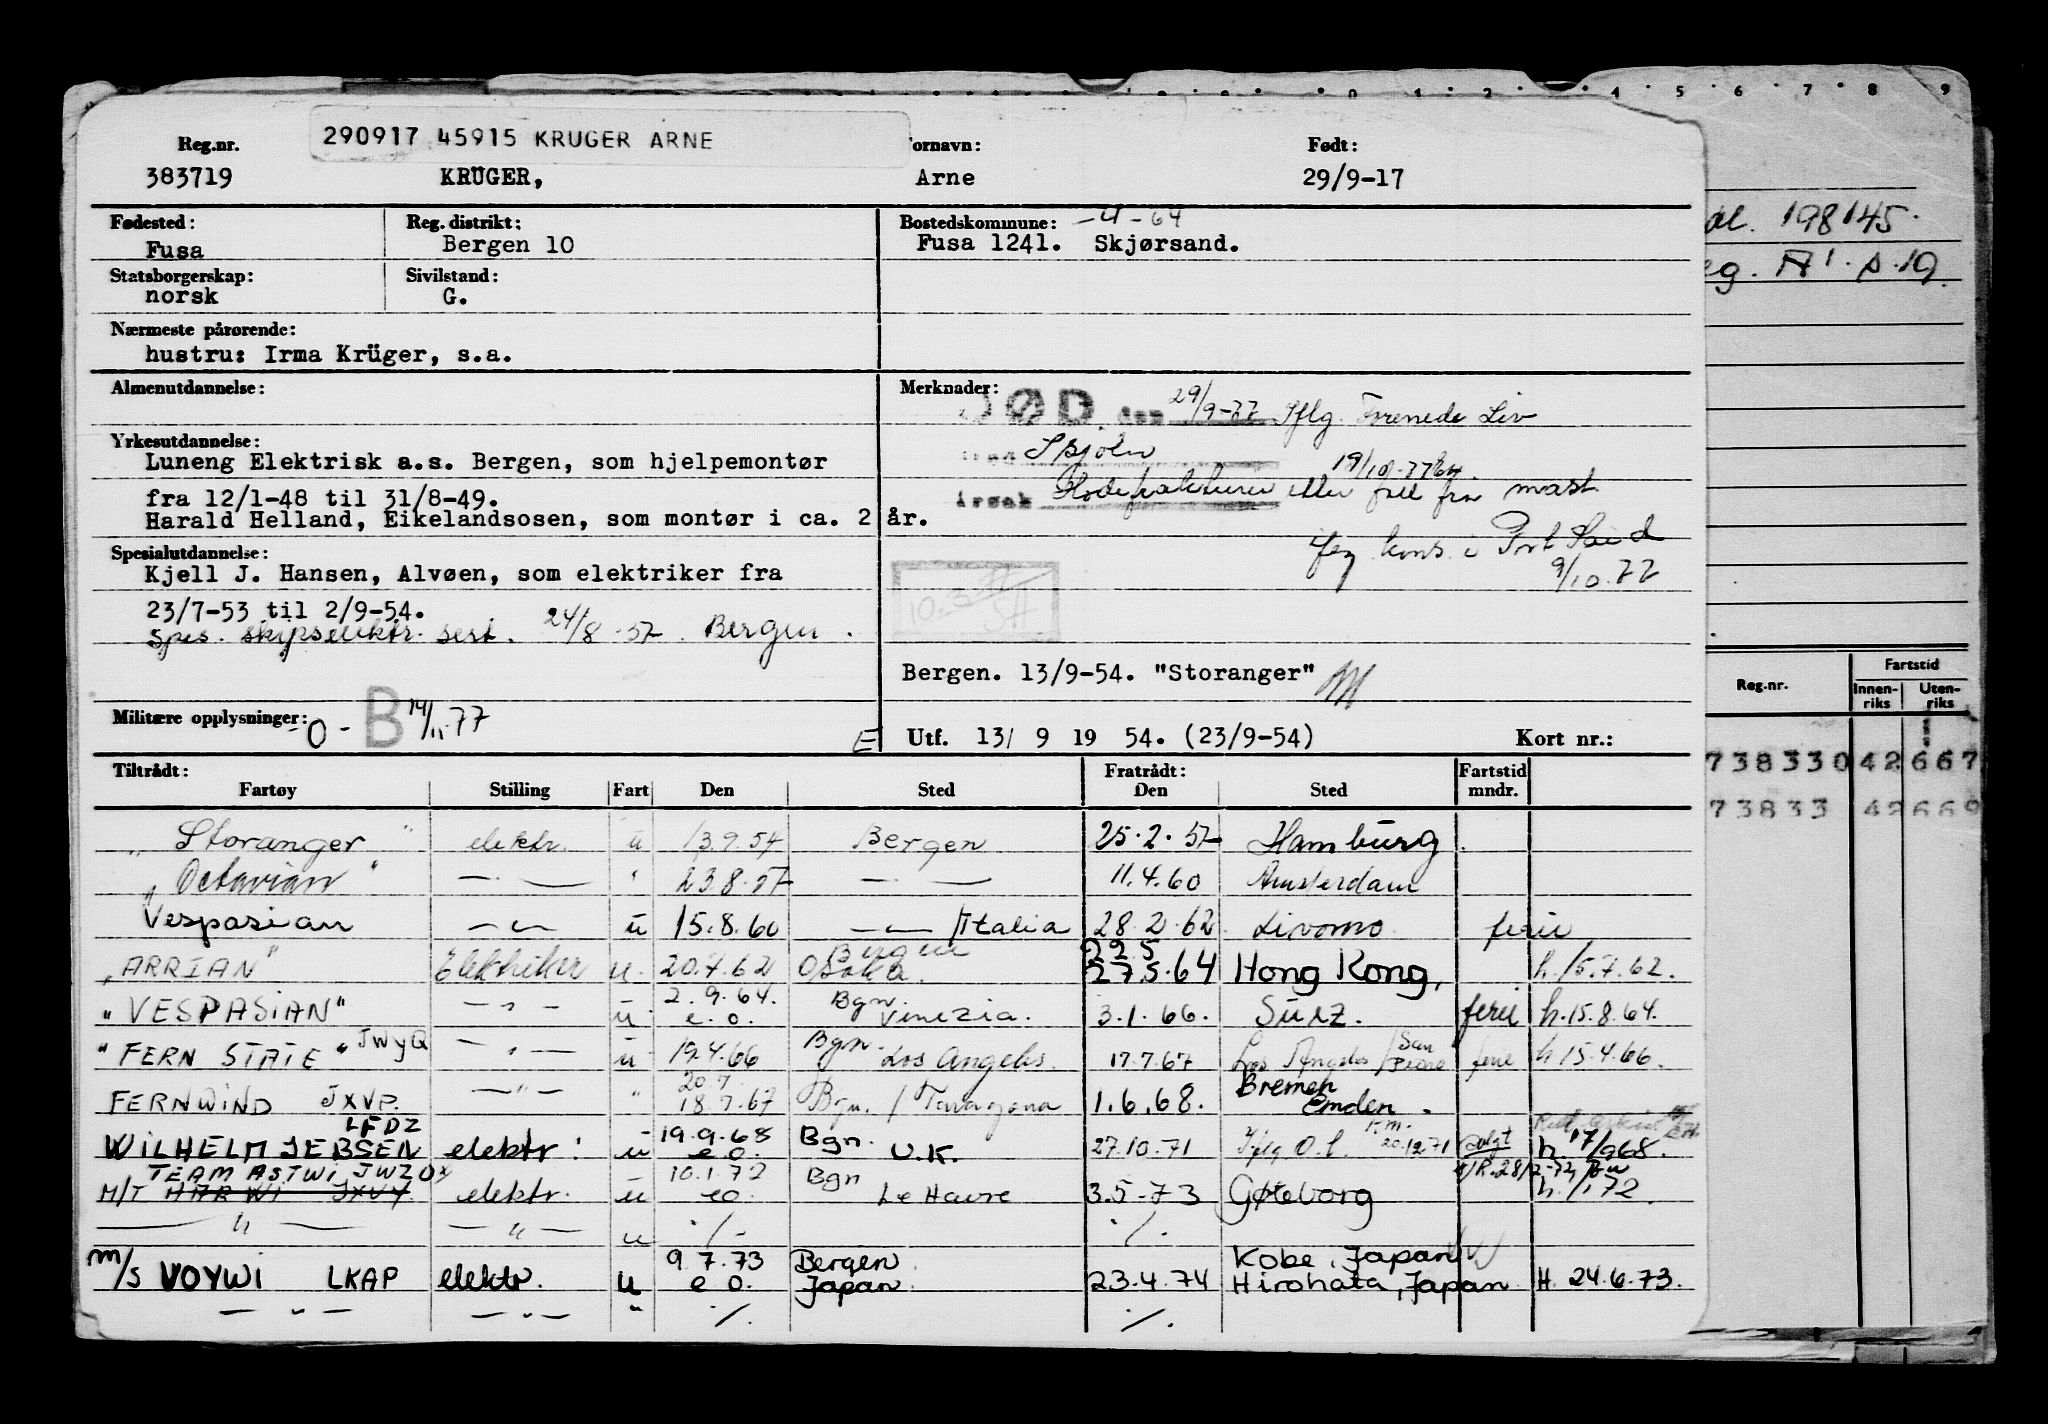 290917 45915 KRUGER ARNE
Reg.nr. ornavn: Født:
383719 KRÜGER, Arne 29/9-17
Fødested: Reg. distrikt: Bostedskommune: -4-64
Fusa Bergen 10 Fusa 1241. Skjørsand.
Statsborgerskap: Sivilstand:
norsk G.
Nærmeste pårørende:
hustru: Irma Krüger, s.a.
Almenutdannelse: Merknader:
DØD den 29/9-77 Iflg. Forenede Liv
Yrkesutdannelse:
Luneng Elektrisk a.s. Bergen, som hjelpemontør
fra 12/1-48 til 31/8-49.
Harald Helland, Eikelandsosen, som montør i ca. 2 år.
19/10-77
årsak etter fall fra mast
kons. i Port Said
9/10.77
Spesialutdannelse:
Kjell J. Hansen, Alvøen, som elektriker fra
23/7-53 til 2/9-54.
Spes. skipselektr. sert. 24/8-57. Bergen.
Bergen. 13/9-54. "Storanger"
Militære opplysninger: -0- B 14/11-77
E Utf. 13/ 9 19 54. (23/9-54) Kort nr.:
Tiltrådt: Fratrådt: Fartstid
Fartøy Stilling Fart Den Sted Den Sted mndr.
"Storanger" elektr. u 13.9.54 Bergen 25.2.57 Hamburg
"Octavian" — " — " 23.8.57 — " — 11.4.60 Amsterdam
Vespasian — " — u 15.8.60 — " — /Italia 28.2.62 Livorno ferie
Bergen 22.5
"ARRIAN" Elektriker u. 20.7.62 Osaka. 27.5.64 Hong Kong, h.15.7.62.
2.9.64. Bgn.
"VESPASIAN" — " — u e.o. Venezia. 3.1.66. Suez. ferie h.15.8.64.
"FERN STATE" JWYQ — " — u 19.4.66 Bgn. Los Angeles. 17.7.67 Los Angeles/San Pedro ferie h 15.4.66.
20.7 Bremen
FERNWIND JXVP. — " — " 18.7.67 Bgn. / Taragona 1.6.68. Emden.
LFDZ 19.9.68 Bgn.
WILHELM JEBSEN elektr. u e.o. U.K. 27.10.71 Iflg O.l. 20.12.71 h. 17/968.
TEAM ASTWI JWZO 10.1.72 Bgn
M/T MARWI JXVY elektr. u eo Le Havre 3.5-73 Gøteborg h. /172.
— " — — " — u ·/· ·/·
9.7.73 Bergen Kobe, Japan
m/s VOYWI LKAP elektr. u e o. Japan. 23.4.74 Hirohata, Japan H. 24.6.73.
— " — — " — " ·/. ·/.
0 1 2 4 5 6 7 8 9
198145.
Reg.nr. Fartstid
Innen-riks Uten-riks
738330 42 667
73833 42 669